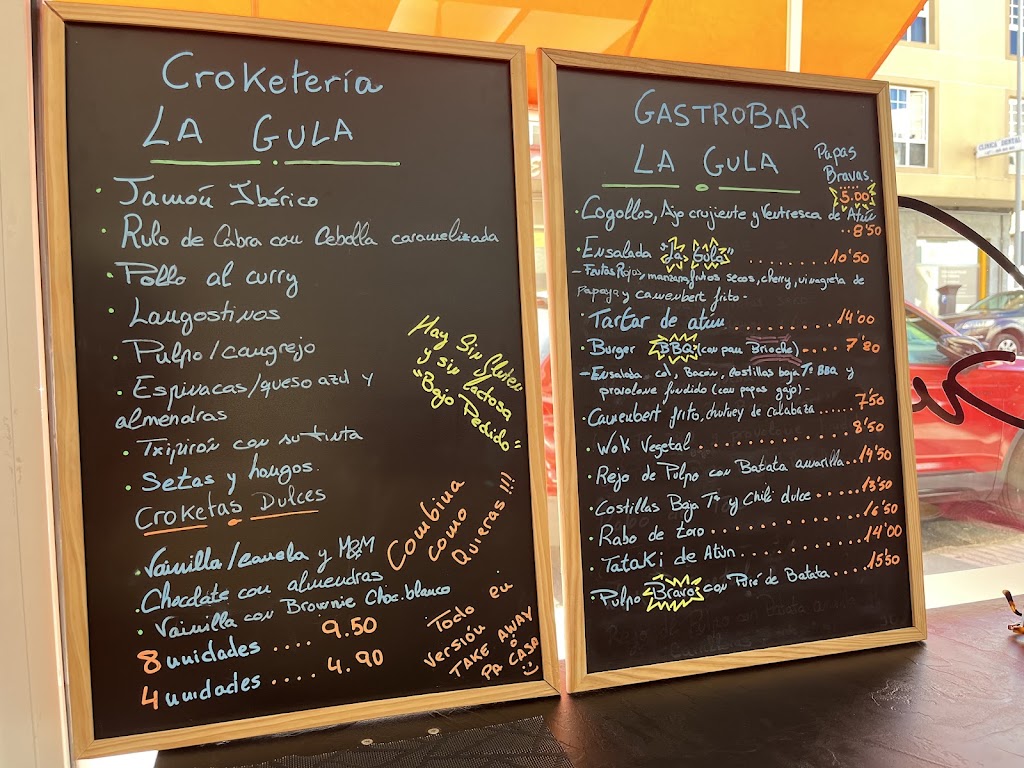 Croketería
LA GULA
• Jamón Ibérico
• Rulo de Cabra con Cebolla caramelizada
• Pollo al curry
• Langostinos
• Pulpo/cangrejo
• Espinacas/queso azul y
almendras
• Txipirón con su tinta
• Setas y hongos
Croketas Dulces
• Vainilla/canela y M&M
• Chocolate con almendras
• Vainilla con Brownie Choc. blanco
8 unidades .... 9.50
4 unidades .... 4.90
Hay Sin Gluten
y sin lactosa
"Bajo Pedido"
Combina
como
Quieras!!!
Todo en
versión
TAKE AWAY
o
PA CASA
GASTROBAR
LA GULA
Papas
Bravas
5.00
• Cogollos, Ajo crujiente y Ventresca de Atún
..8'50
• Ensalada "La Gula" ....... 10'50
- Frutas Rojas, manzana, frutos secos, cherry, vinagreta de
papaya y camembert frito -
• Tartar de atún ........... 14'00
• Burger BBQ (con pan Brioche) .... 7'80
- Ensalada col, Bacon, costillas baja Tª BBQ y
provolone fundido (con papas gajo) -
• Camembert frito, chutney de calabaza ...... 7'50
• Wok Vegetal ............ 8'50
• Rejo de Pulpo con Batata amarilla .. 14'50
• Costillas Baja Tª y Chili dulce ..... 13'50
• Rabo de toro ............ 16'50
• Tataki de Atún ............ 14'00
• Pulpo Bravo con Puré de Batata ..... 15'50
CLINICA DENTAL